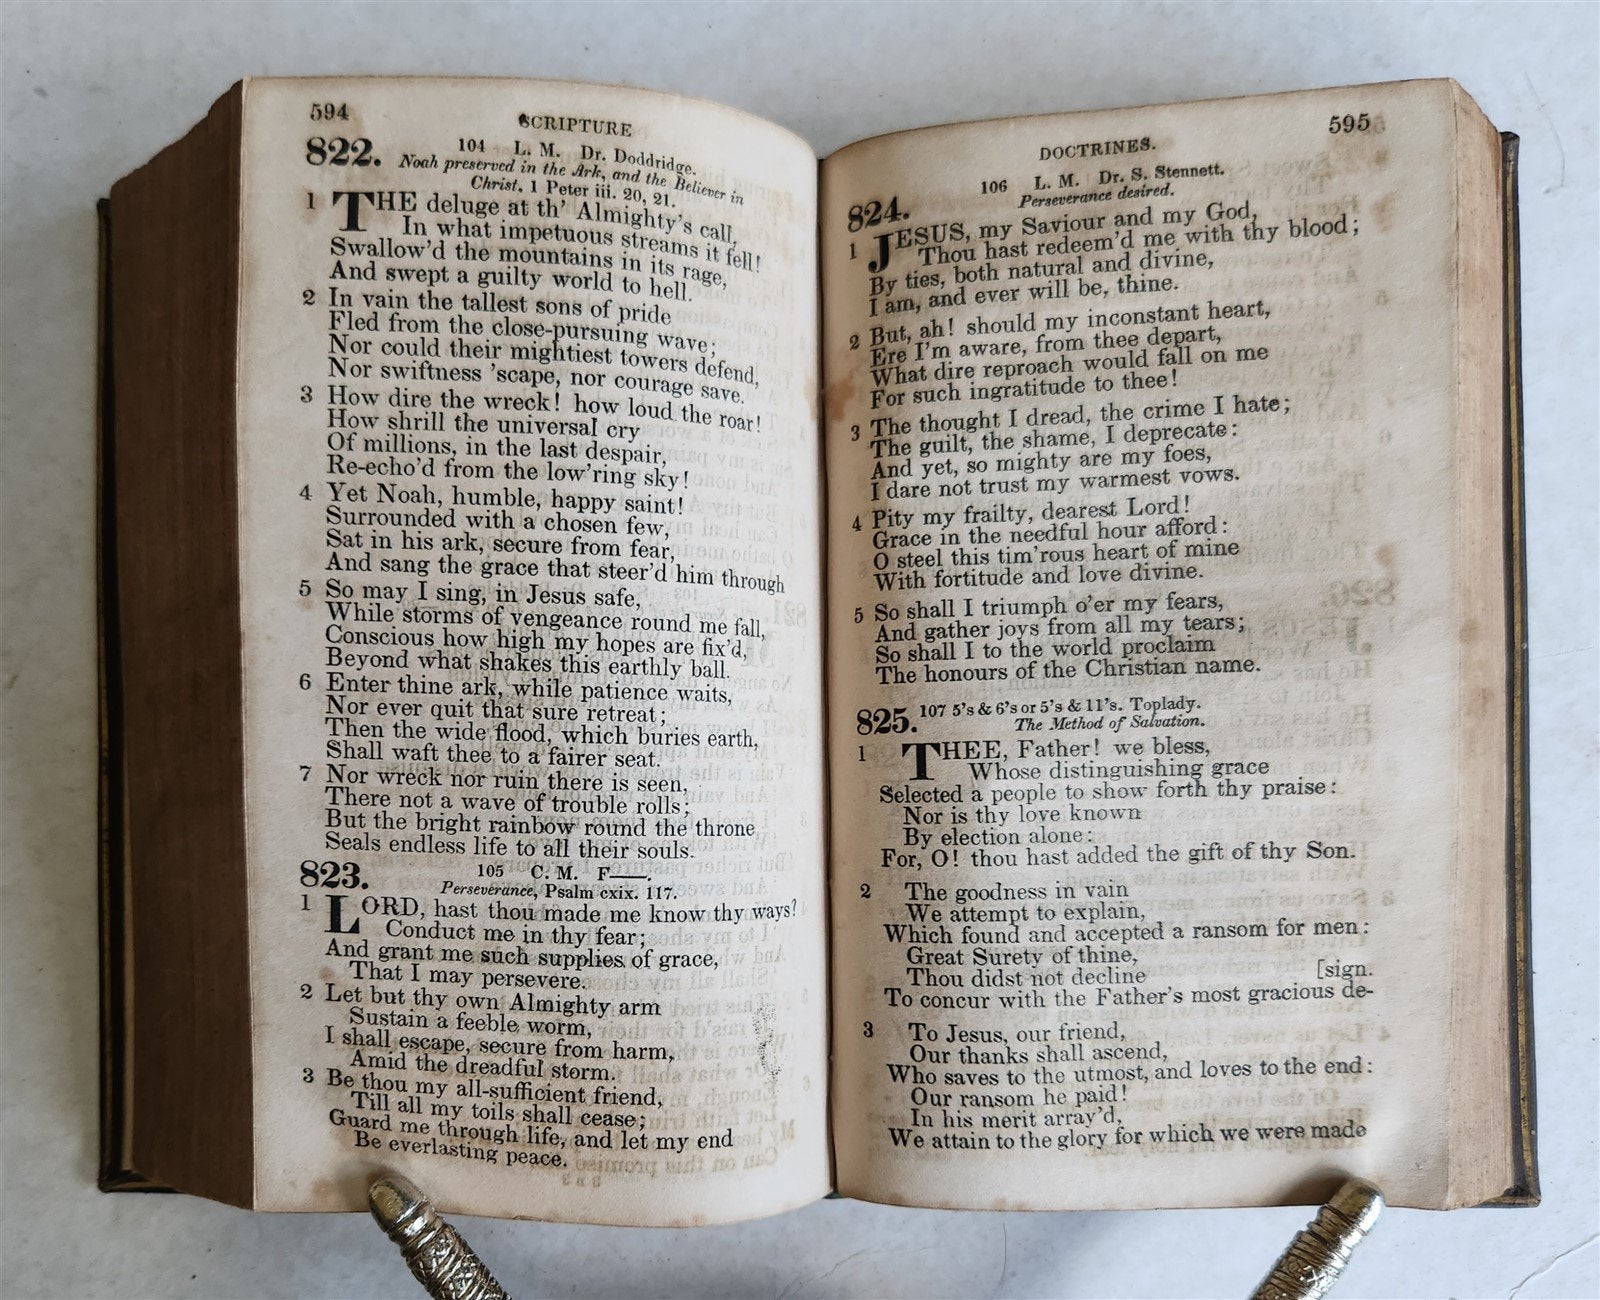 594
SCRIPTURE
822. 104 L. M. Dr. Doddridge.
Noah preserved in the Ark, and the Believer in
Christ. 1 Peter iii. 20, 21.
1 THE deluge at th' Almighty's call,
In what impetuous streams it fell!
Swallow'd the mountains in its rage,
And swept a guilty world to hell.
2 In vain the tallest sons of pride
Fled from the close-pursuing wave;
Nor could their mightiest towers defend,
Nor swiftness 'scape, nor courage save.
3 How dire the wreck! how loud the roar!
How shrill the universal cry
Of millions, in the last despair,
Re-echo'd from the low'ring sky!
4 Yet Noah, humble, happy saint!
Surrounded with a chosen few,
Sat in his ark, secure from fear,
And sang the grace that steer'd him through
5 So may I sing, in Jesus safe,
While storms of vengeance round me fall,
Conscious how high my hopes are fix'd,
Beyond what shakes this earthly ball.
6 Enter thine ark, while patience waits,
Nor ever quit that sure retreat;
Then the wide flood, which buries earth,
Shall waft thee to a fairer seat.
7 Nor wreck nor ruin there is seen,
There not a wave of trouble rolls;
But the bright rainbow round the throne
Seals endless life to all their souls.
823. 105 C. M. F——.
Perseverance, Psalm cxix. 117.
1 LORD, hast thou made me know thy ways?
Conduct me in thy fear;
And grant me such supplies of grace,
That I may persevere.
2 Let but thy own Almighty arm
Sustain a feeble worm,
I shall escape, secure from harm,
Amid the dreadful storm.
3 Be thou my all-sufficient friend,
Till all my toils shall cease;
Guard me through life, and let my end
Be everlasting peace.
595
DOCTRINES.
824. 106 L. M. Dr. S. Stennett.
Perseverance desired.
1 JESUS, my Saviour and my God,
Thou hast redeem'd me with thy blood;
By ties, both natural and divine,
I am, and ever will be, thine.
2 But, ah! should my inconstant heart,
Ere I'm aware, from thee depart,
What dire reproach would fall on me
For such ingratitude to thee!
3 The thought I dread, the crime I hate;
The guilt, the shame, I deprecate:
And yet, so mighty are my foes,
I dare not trust my warmest vows.
4 Pity my frailty, dearest Lord!
Grace in the needful hour afford:
O steel this tim'rous heart of mine
With fortitude and love divine.
5 So shall I triumph o'er my fears,
And gather joys from all my tears;
So shall I to the world proclaim
The honours of the Christian name.
825. 107 5's & 6's or 5's & 11's. Toplady.
The Method of Salvation.
1 THEE, Father! we bless,
Whose distinguishing grace
Selected a people to show forth thy praise:
Nor is thy love known
By election alone:
For, O! thou hast added the gift of thy Son.
2 The goodness in vain
We attempt to explain,
Which found and accepted a ransom for men:
Great Surety of thine,
Thou didst not decline [sign.
To concur with the Father's most gracious de-
3 To Jesus, our friend,
Our thanks shall ascend,
Who saves to the utmost, and loves to the end:
Our ransom he paid!
In his merit array'd,
We attain to the glory for which we were made